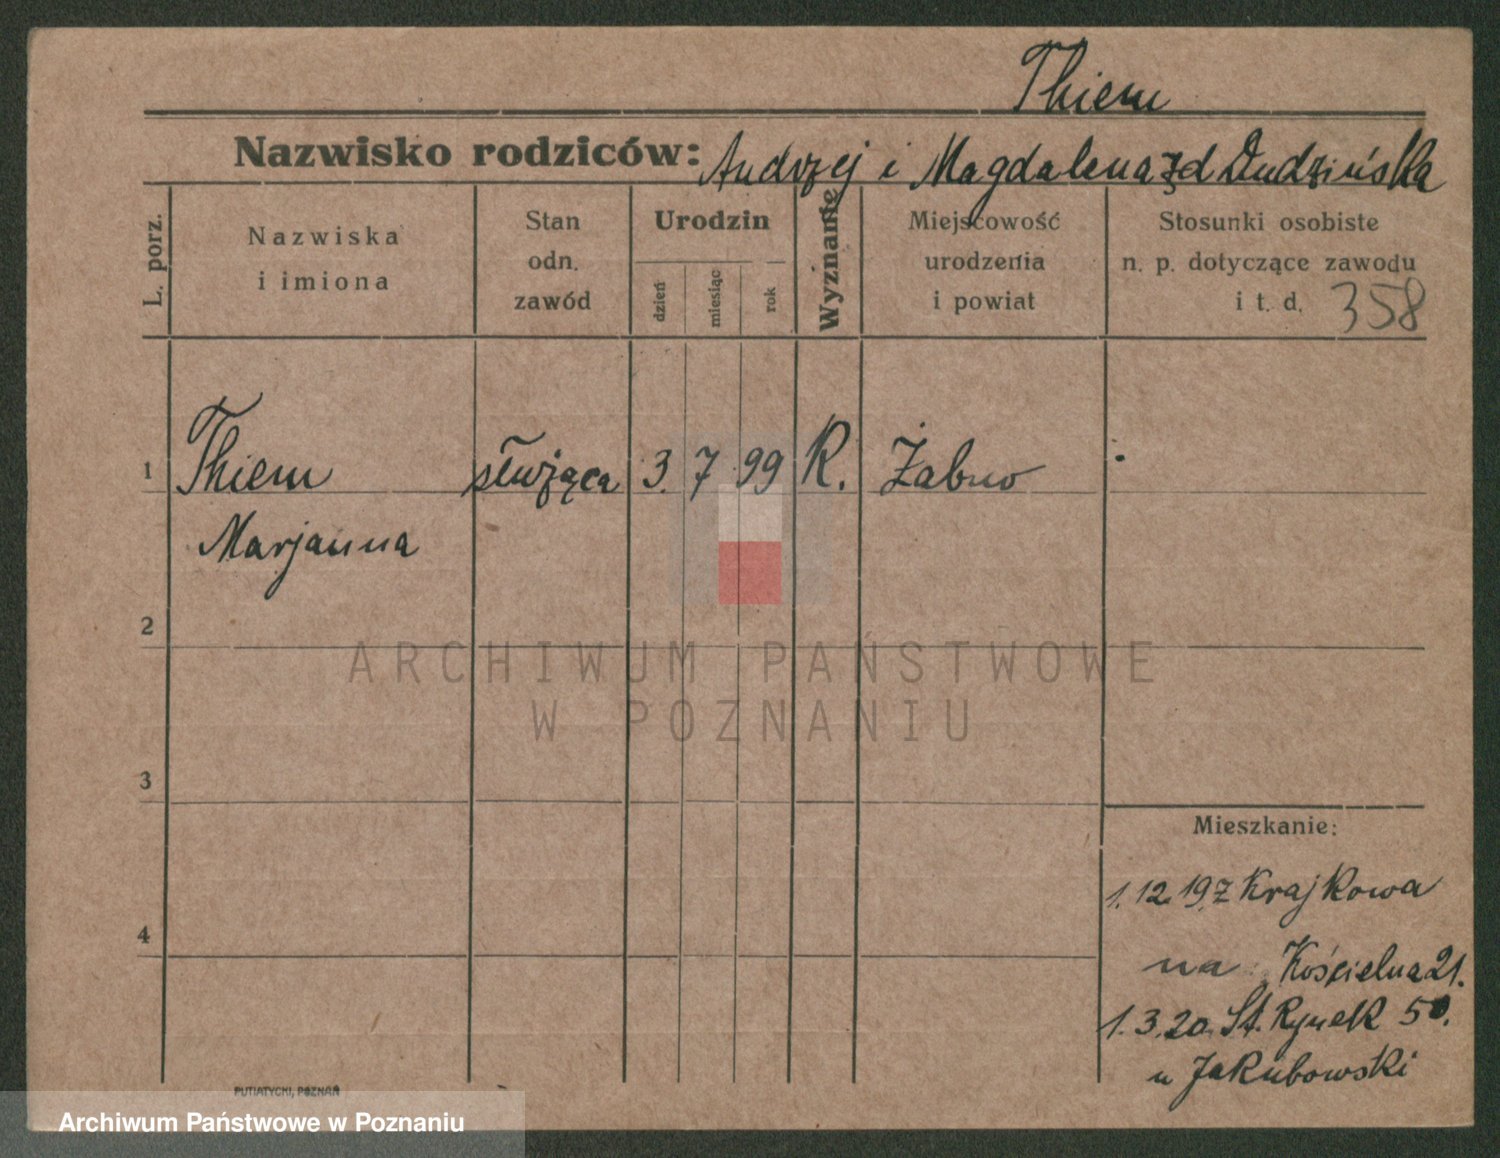 Thiem
Nazwisko rodziców: Andrzej i Magdalena zd Dudzińska
L. porz.
Nazwiska
i imiona
Stan
odn.
zawód
Urodzin
dzień
miesiąc
rok
Wyznanie
Miejscowość
urodzenia
i powiat
Stosunki osobiste
n. p. dotyczące zawodu
i t. d. 358
1 Thiem służąca 3. 7 99 R. Żabno
Marjanna
2
ARCHIWUM PAŃSTWOWE
W POZNANIU
3
Mieszkanie:
1. 12 19. z Krajkowa
4
na Kościelna 21.
1. 3. 20. St. Rynek 50.
u Jakubowski
PUTIATYCKI, POZNAŃ
Archiwum Państwowe w Poznaniu